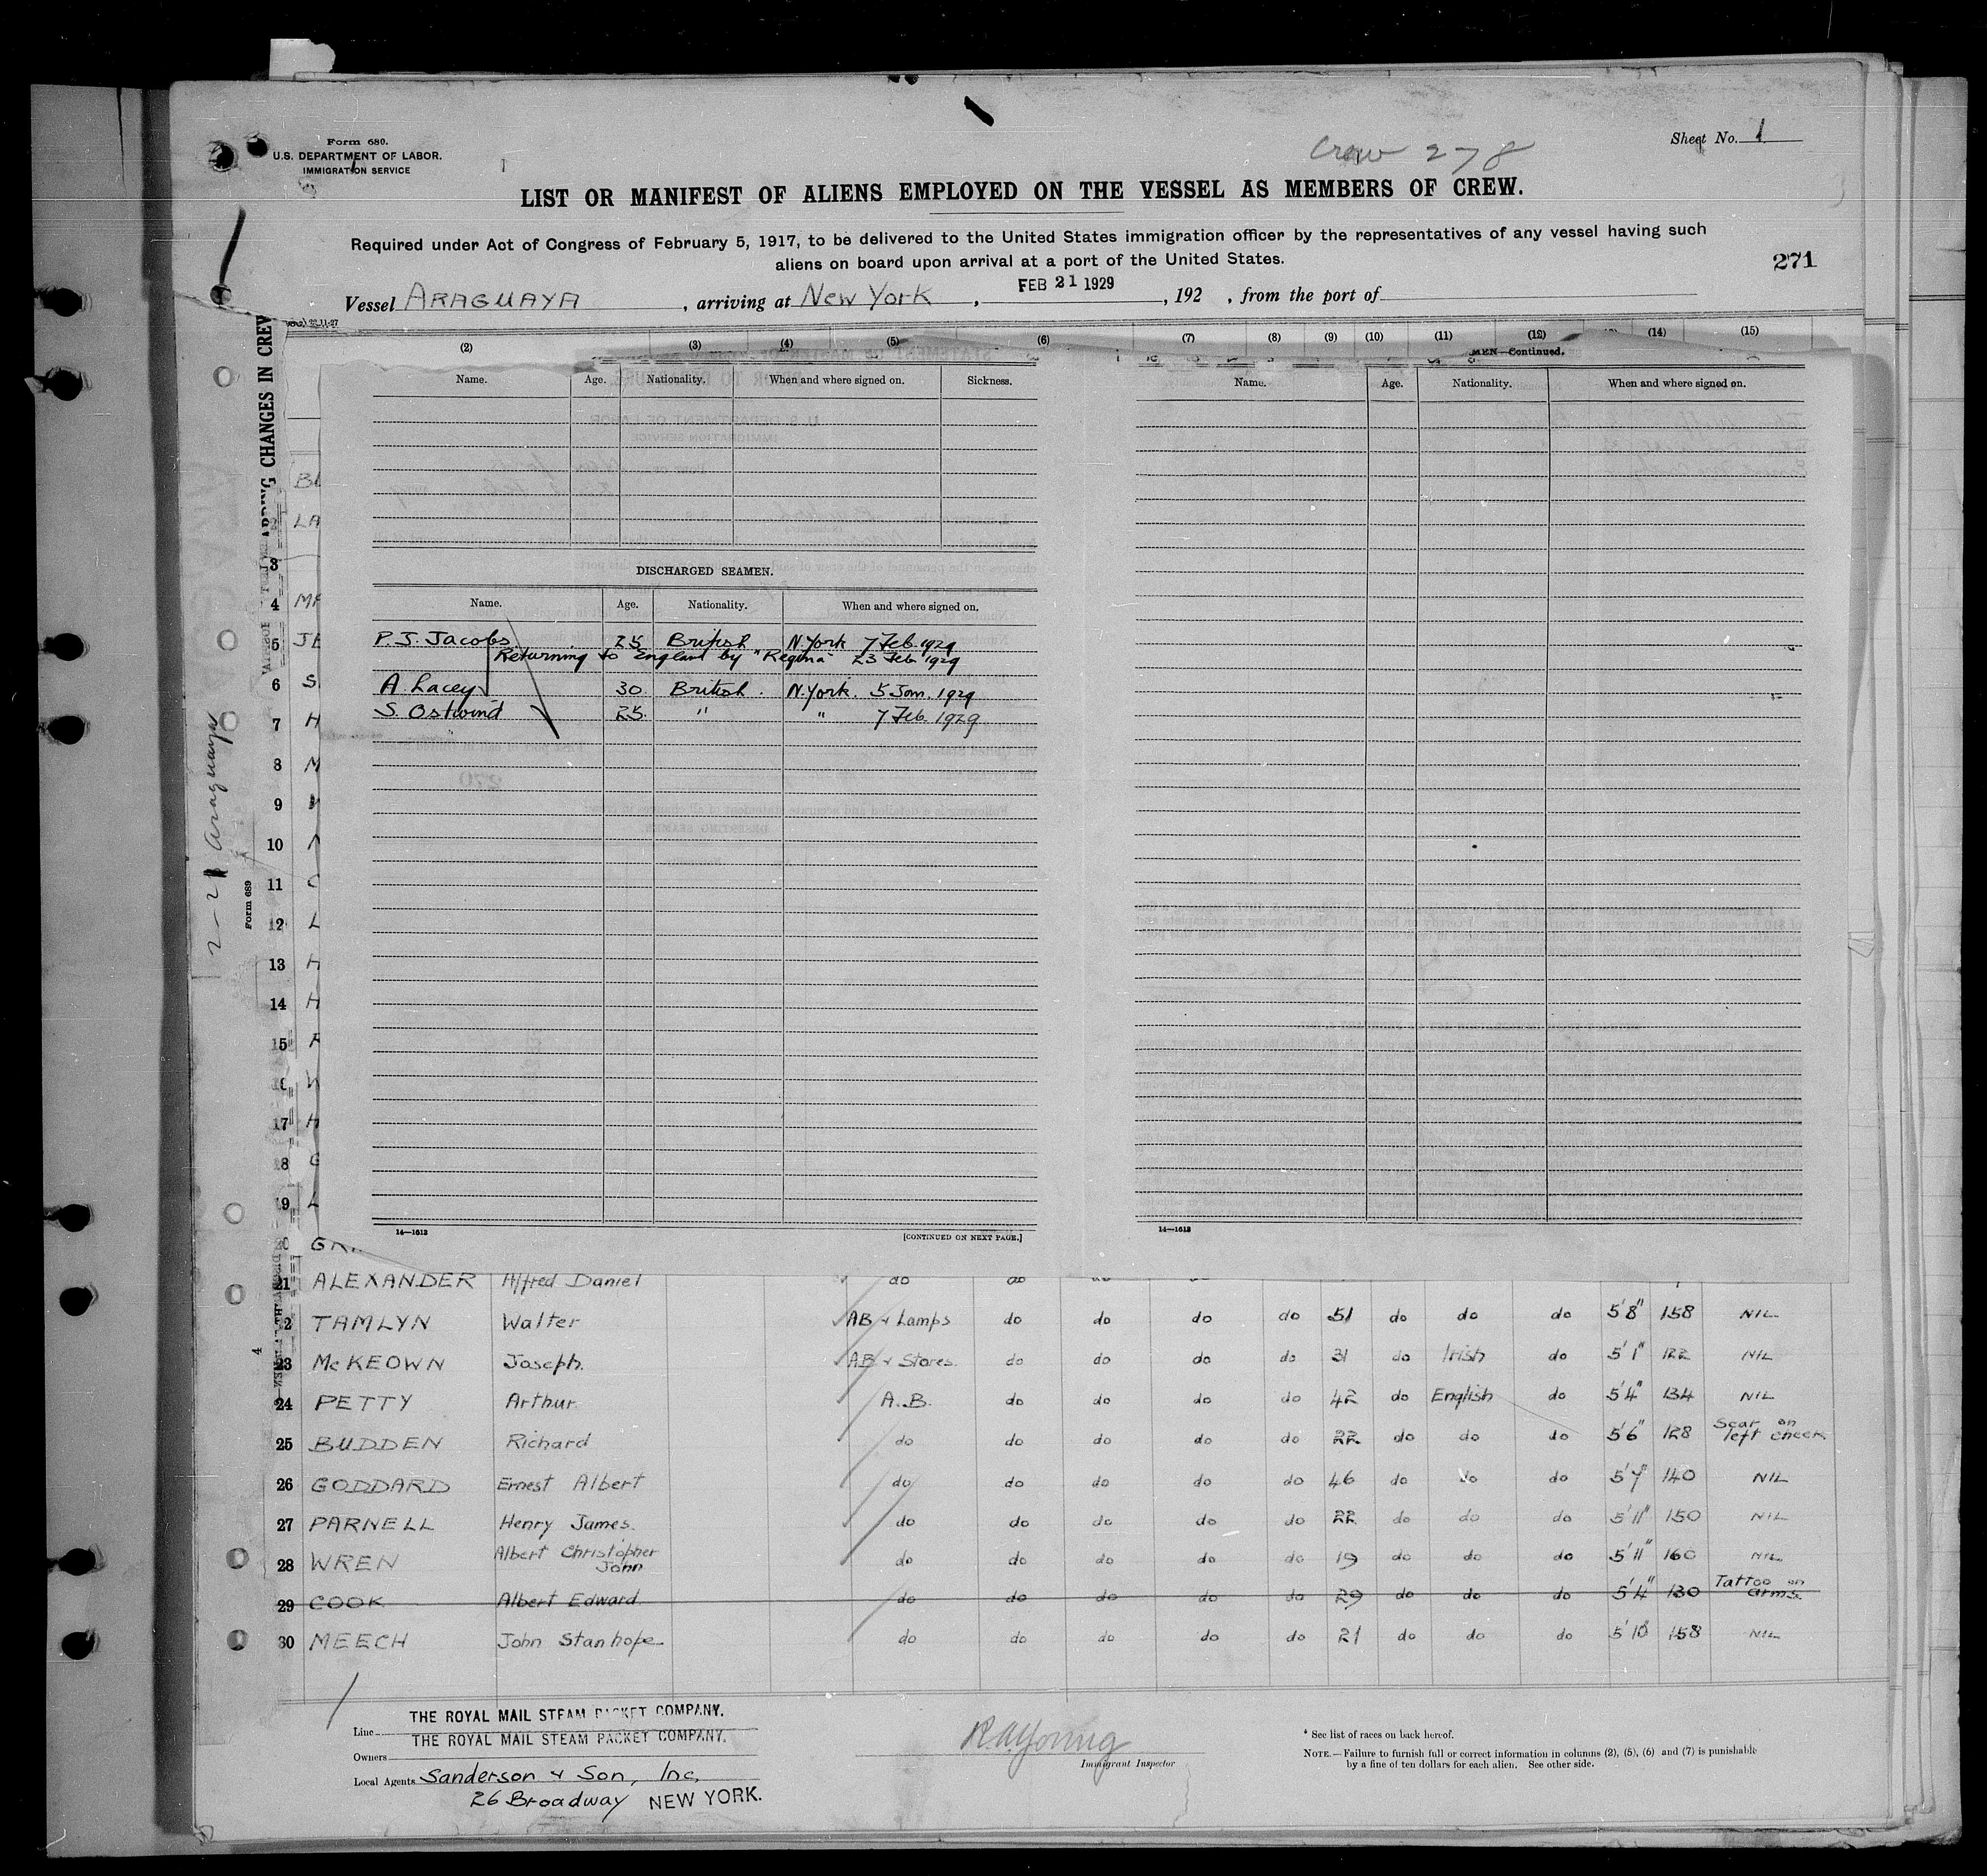 Form 680.
U.S. DEPARTMENT OF LABOR.
IMMIGRATION SERVICE
Crew 278
Sheet No. 1
LIST OR MANIFEST OF ALIENS EMPLOYED ON THE VESSEL AS MEMBERS OF CREW.
Required under Act of Congress of February 5, 1917, to be delivered to the United States immigration officer by the representatives of any vessel having such
aliens on board upon arrival at a port of the United States.
271
Vessel ARAGUAYA, arriving at New York, FEB 21 1929, 192 , from the port of
(2) (3) (4) (5) (6) (7) (8) (9) (10) (11) (12) (14) (15)
MEN—Continued.
Name. Age. Nationality. When and where signed on. Sickness.
Name. Age. Nationality. When and where signed on.
DISCHARGED SEAMEN.
Name. Age. Nationality. When and where signed on.
P.J. Jacobs 25 British N.York 7 Feb. 1929
Returning to England by "Regina" 23 Feb 1929
A. Lacey 30 British. N.York. 5 Jan. 1929
S. Ostwind 25. " " 7 Feb. 1929
14—1613 [CONTINUED ON NEXT PAGE.]
14—1613
CHANGES IN CREW
2-21 Araguaya
Form 689
4
3
4
5
6
7
8
9
10
11
12
13
14
15
17
18
19
21 ALEXANDER Alfred Daniel do do do
TAMLYN Walter AB & Lamps do do do do 51 do do do 5'8" 158 NIL
23 McKEOWN Joseph. AB & Stores. do do do do 31 do Irish do 5'1" 122 NIL
24 PETTY Arthur A.B. do do do do 42 do English do 5'4" 134 NIL
25 BUDDEN Richard do do do do do 22 do do do 5'6" 128 Scar on left cheek
26 GODDARD Ernest Albert do do do do do 46 do do do 5'7" 140 NIL
27 PARNELL Henry James. do do do do do 22 do do do 5'11" 150 NIL
28 WREN Albert Christopher John do do do do do 19 do do do 5'11" 160 NIL
29 COOK Albert Edward do do do do do 29 do do do 5'4" 130 Tattoo on arms.
30 MEECH John Stanhope do do do do do 21 do do do 5'10" 158 NIL
Line THE ROYAL MAIL STEAM PACKET COMPANY.
Owners THE ROYAL MAIL STEAM PACKET COMPANY.
Local Agents Sanderson & Son, Inc,
26 Broadway NEW YORK.
R.A. Young
Immigrant Inspector
* See list of races on back hereof.
NOTE.—Failure to furnish full or correct information in columns (2), (5), (6) and (7) is punishable
by a fine of ten dollars for each alien. See other side.